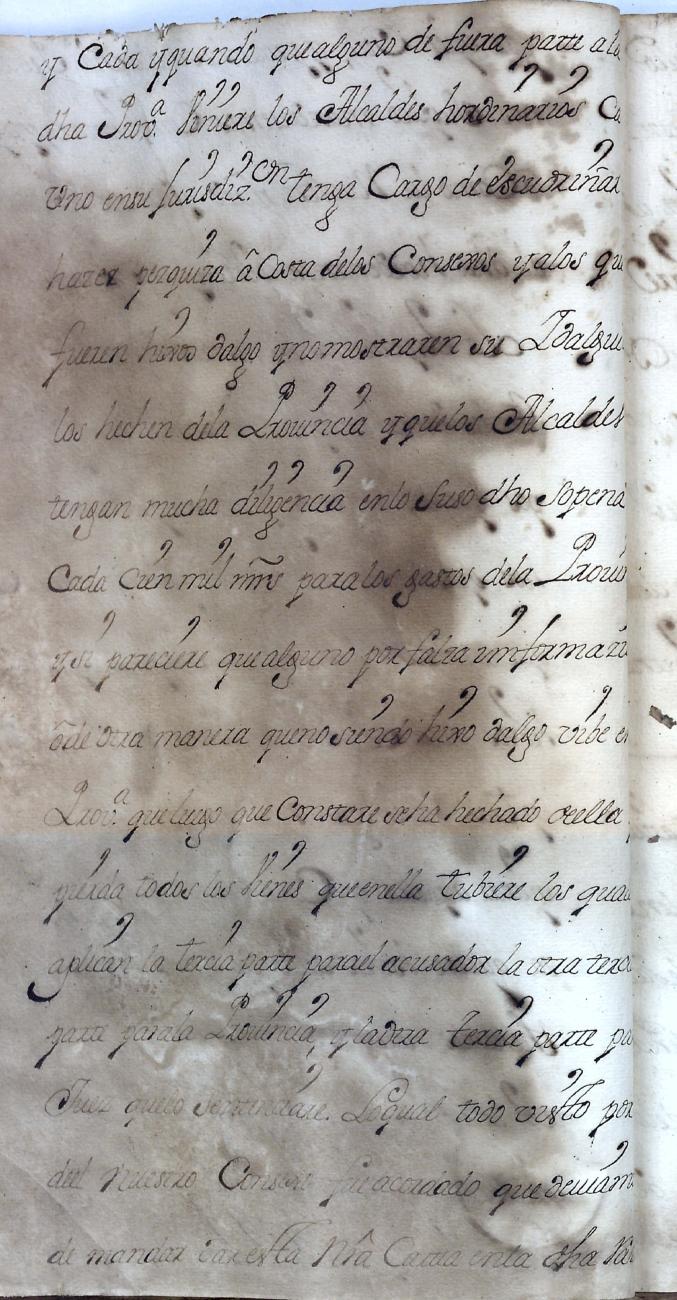 y Cada y quando que alguno de fuera parte a la
dha Prov.ª Viniere los Alcaldes hordinarios Ca
Uno ensu Jurisdiz.on tenga Cargo de escudriñar
hazer pezquiza â Costa delos Consexos y alos que
fueren hixo dalgo ynomostraren su Idalgui
los hechen dela Provincia y quelos Alcaldes
tengan mucha diligencia enlo suso dho sopena
Cada Cien mil mrs para los gastos dela Provin
y si pareciere que alguno por falza imformazi
ô de otra manera queno siendo hixo dalgo vibe en
Prov.ª queluego que Constare seha hechado de ella
pierda todos los Vienes queenella tubiere los qua
aplican la tercia parte parael acusador la otra terci
parte parala Provincia, y la otra tercia parte pa
Juez quelo sentenziare. Loqual todo visto por
del Nuestro Consejo fue acordado que deviam
de mandar dar esta Nrâ Carta enla dha